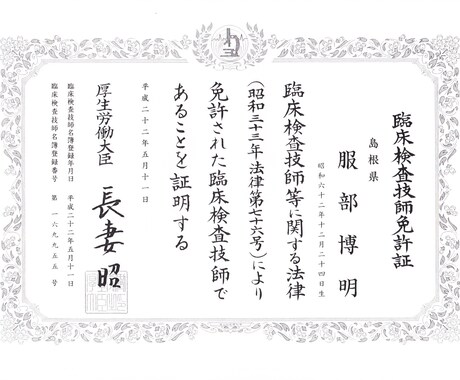 臨床検査技師免許証
島根県
服部博明
昭和六十二年十二月二十四日生
臨床検査技師等に関する法律
(昭和三十三年法律第七十六号)により
免許された臨床検査技師で
あることを証明する
平成二十二年五月十一日
厚生労働大臣 長妻昭
臨床検査技師名簿登録年月日 平成二十二年五月十一日
臨床検査技師名簿登録番号 第一六九九五五号